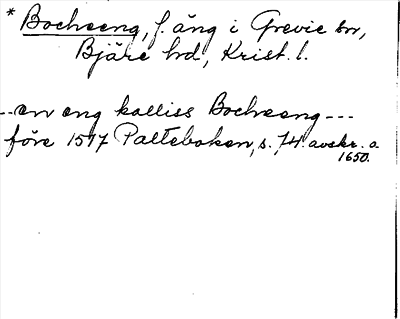 * Bockeeng, f. äng i Grevie sn,
Bjäre hd, Krist. l.
--en eng kalliss Bockeeng---
före 1597 Palteboken, s. 74. avskr. a.
1650.